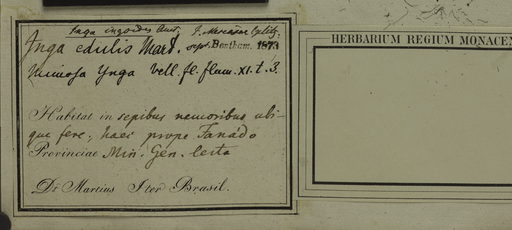 Inga ingoides
Inga edulis Mart. Bentham. 1873
Mimosa Ynga Vell. fl. flum. XI. t. 3.
Habitat in sepibus nemoribus ubi-
que fere, haec prope Fanado
Provinciae Min. Gen. lecta
Dr Martius Iter Brasil.
HERBARIUM REGIUM MONACEN